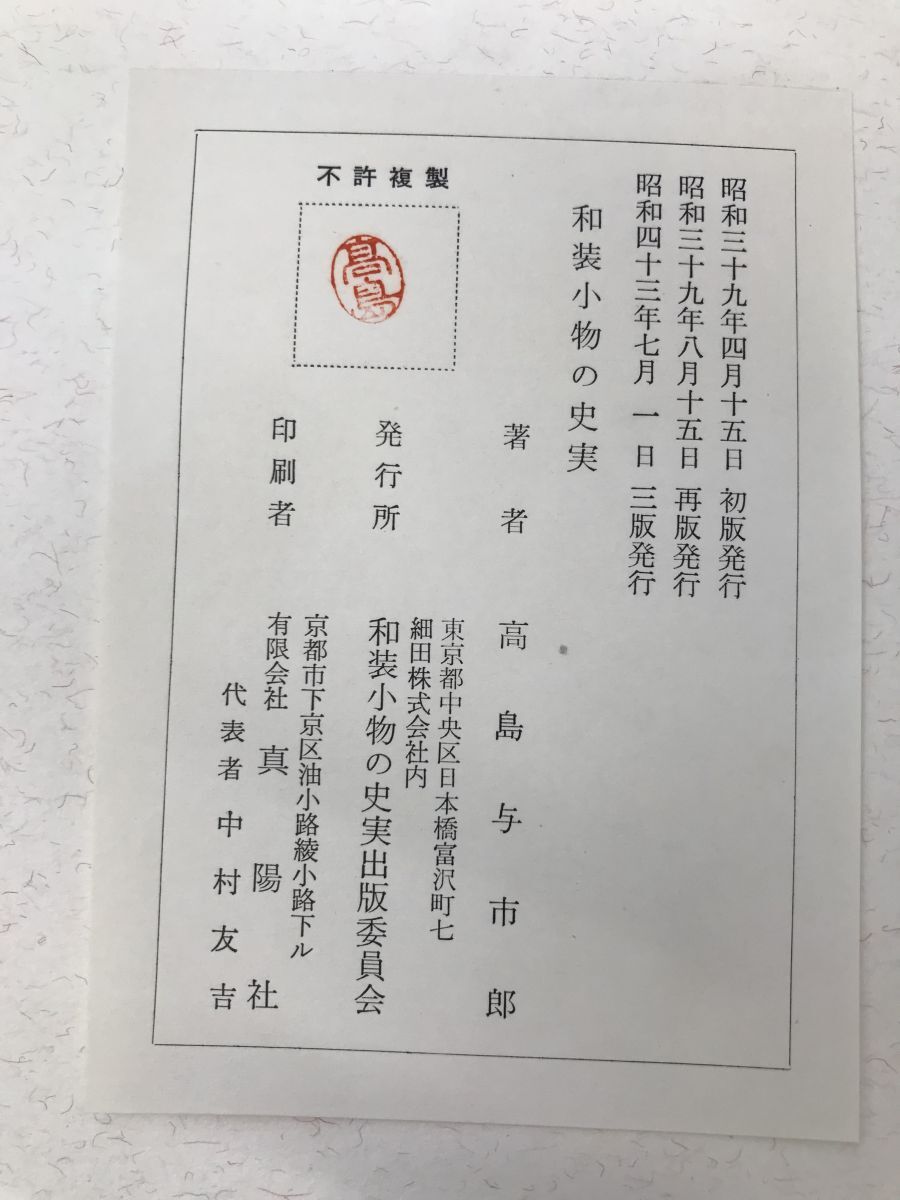 昭和三十九年四月十五日 初版発行
昭和三十九年八月十五日 再版発行
昭和四十三年七月 一 日 三版発行
和装小物の史実
著者 高島与市郎
東京都中央区日本橋富沢町七
細田株式会社内
発行所 和装小物の史実出版委員会
京都市下京区油小路綾小路下ル
印刷者 有限会社 真陽社
代表者 中村友吉
不許複製
高島